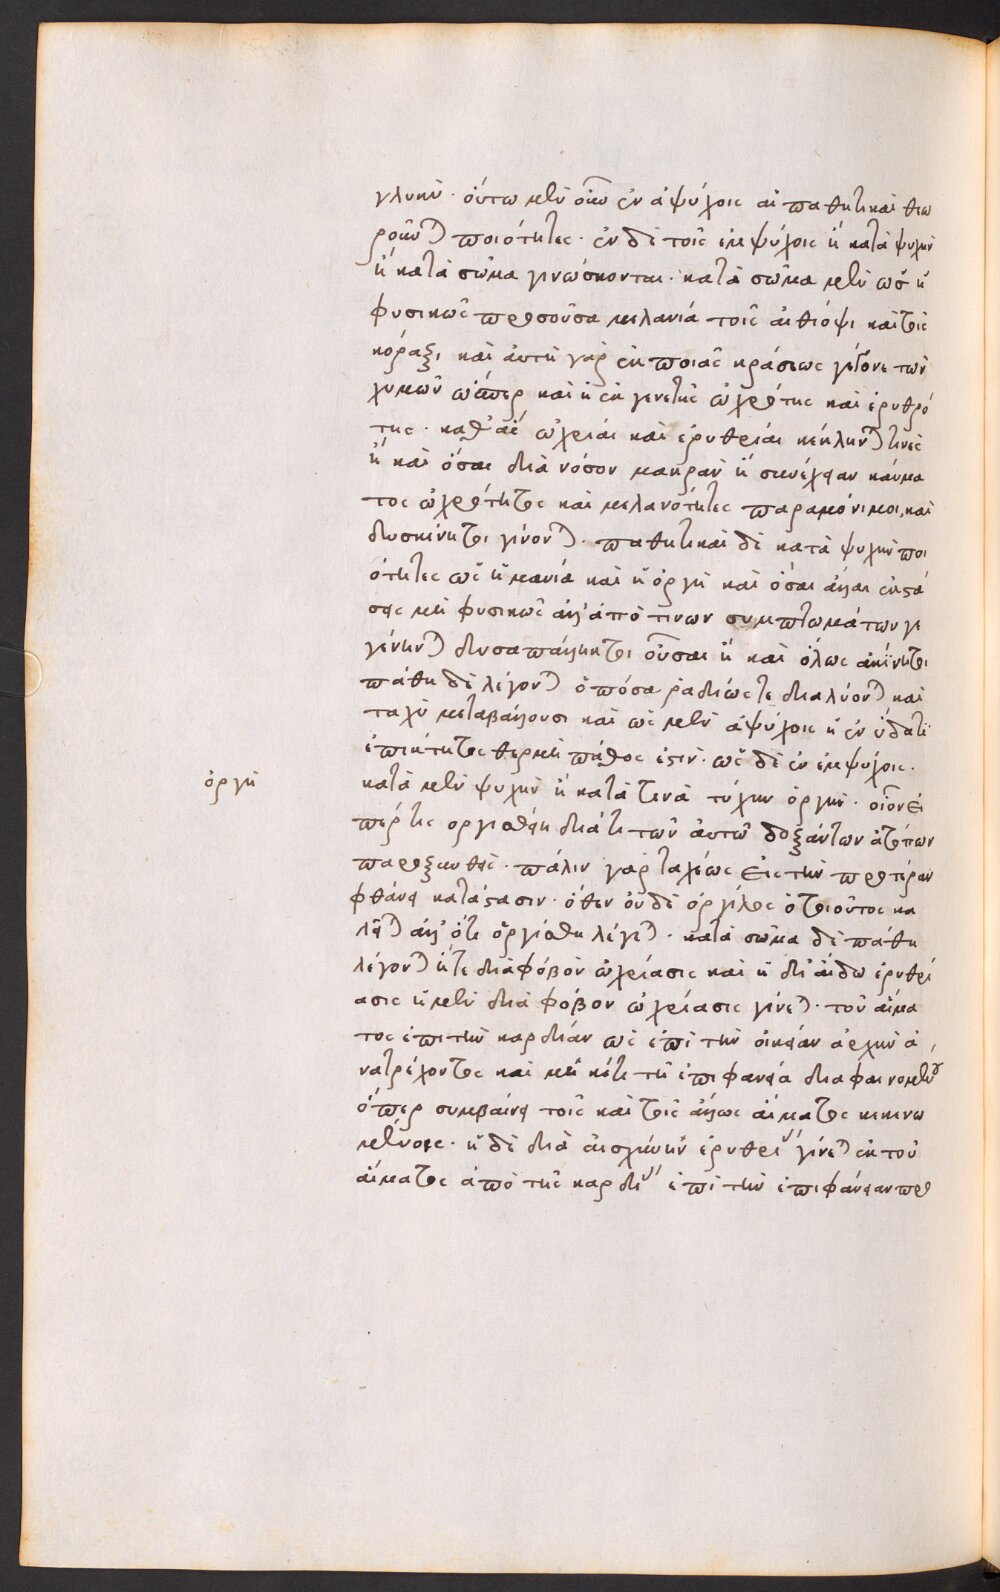 γλυκύ · οὕτω μὲν οὖν ἐν ἀψύχοις αἱ παθητικαὶ θεω
ροῦν) ποιότητες · ἐν δὲ τοῖς ἐμψύχοις ἢ κατὰ ψυχὴν
ἢ κατὰ σῶμα γινώσκονται · κατὰ σῶμα μὲν ὡς ἡ
φυσικῶς προσοῦσα μελανιά τοῖς αἰθίοψι καὶ τοῖς
κόραξι καὶ αὐτὴ γὰρ ἐκ ποιᾶς κράσεως γέγονε τῶν
χυμῶν ὥσπερ καὶ ἡ ἐκ γενετῆς ὠχρότης καὶ ἐρυθρό
της · καθ' ἃς ὠχρίαι καὶ ἐρυθρίαι κέκλην) τινὲς
ἢ καὶ ὅσαι διὰ νόσον μακρὰν ἢ συνέχειαν καύμα
τος ὠχρότητος καὶ μελανότητες παραμόνιμοι, καὶ
δυσκίνητοι γίνον) · παθητικαὶ δὲ κατὰ ψυχὴν ποι
ότητες ὡς ἡ μανία καὶ ἡ ὀργὴ καὶ ὅσαι ἄλλαι ἐκστά
σεις μὴ φυσικῶς ἀλλ' ἀπό τινων συμπτωμάτων γε
γένην) δυσαπάλλακτοι οὖσαι ἢ καὶ ὅλως ἀκίνητοι
πάθη δὲ λέγον) ὁπόσα ῥαδίως τε διαλύον) καὶ
ταχὺ μεταβάλλουσι καὶ ὡς μὲν ἀψύχοις ἡ ἐν ὕδατι
ἐπικτητος θέρμη πάθος ἐστίν · ὡς δὲ ἐν ἐμψύχοις ·
ὀργή
κατὰ μὲν ψυχὴν ἡ κατά τινά τύχην ὀργήν · οἷον εἴ
πέρ τις οργισθῆ διά τι τῶν αὐτῶ δοξάντων ἀτόπων
παροξυνθείς · πάλιν γὰρ ταχέως εἰς τὴν προτέραν
φθάνει κατάστασιν · ὅθεν οὐδὲ ὀργίλος ὁ τοιοῦτος κα
λεῖ) ἀλλ' ὅτι ὠργίσθη λέγε) · κατὰ σῶμα δὲ πάθη
λέγον) ἥ τε διὰ φόβον ὠχρίασις καὶ ἡ δι' αἰδῶ ἐρυθρί
ασις ἡ μὲν διὰ φόβον ὠχρίασις γίνε) · τοῦ αἵμα
τος ἐπὶ τὴν καρδίαν ὡς ἐπὶ τὴν οἰκείαν ἀρχὴν ἀ
νατρέχοντος καὶ μὴ κέτι τῆ ἐπιφανεία διαφαινομένου
ὅπερ συμβαίνει τοῖς καὶ τοῖς ἄλλως αἵματος κεκενω
μένοις · ἡ δὲ διὰ αἰσχύνην ἐρυθρί γίνε) ἐκ τοῦ
αἵματος ἀπὸ τῆς καρδί ἐπὶ τὴν ἐπιφάνειαν προ